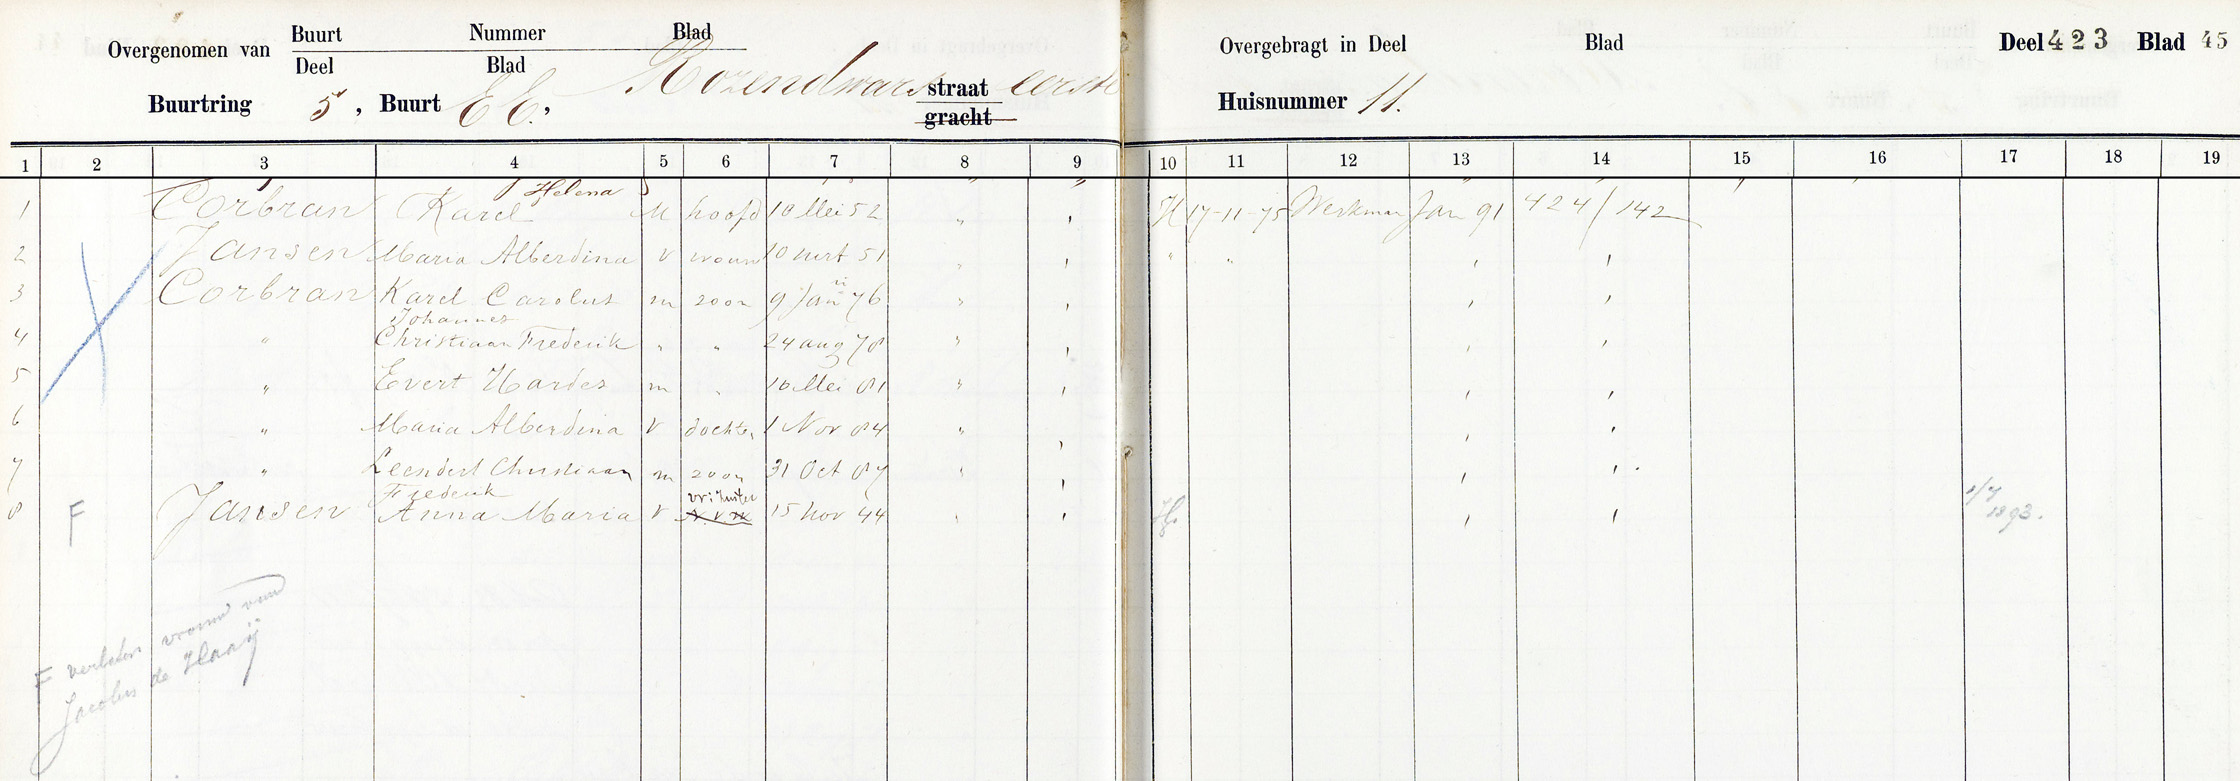 Overgenomen van Buurt Nummer Blad
Deel Blad
Buurtring 5, Buurt EE, Rozendwars straat eerste
gracht
Overgebragt in Deel Blad Deel 423 Blad 45
Huisnummer 11.
1 2 3 4 5 6 7 8 9 10 11 12 13 14 15 16 17 18 19
Helena
1 Corbran Karel M hoofd 10 Mei 52 " " H 17-11-75 Werkman Jan 91 424/142
2 Jansen Maria Alberdina V vrouw 10 mrt 51 " " " "
3 Corbran Karel Carolus m zoon 9 Jan 76 " "
Johannes
4 " Christiaan Frederik " " 24 aug 78 " "
5 " Evert Hardes m " 10 Mei 81 " "
6 " Maria Alberdina V dochter 1 Nov 84 " "
7 " Leendert Christiaan m zoon 31 Oct 87 " "
Frederik
8 F Jansen Anna Maria V 15 nov 44 " " H. 1/7
1893.
F verlaten vrouw van
Jacobus de Haaij